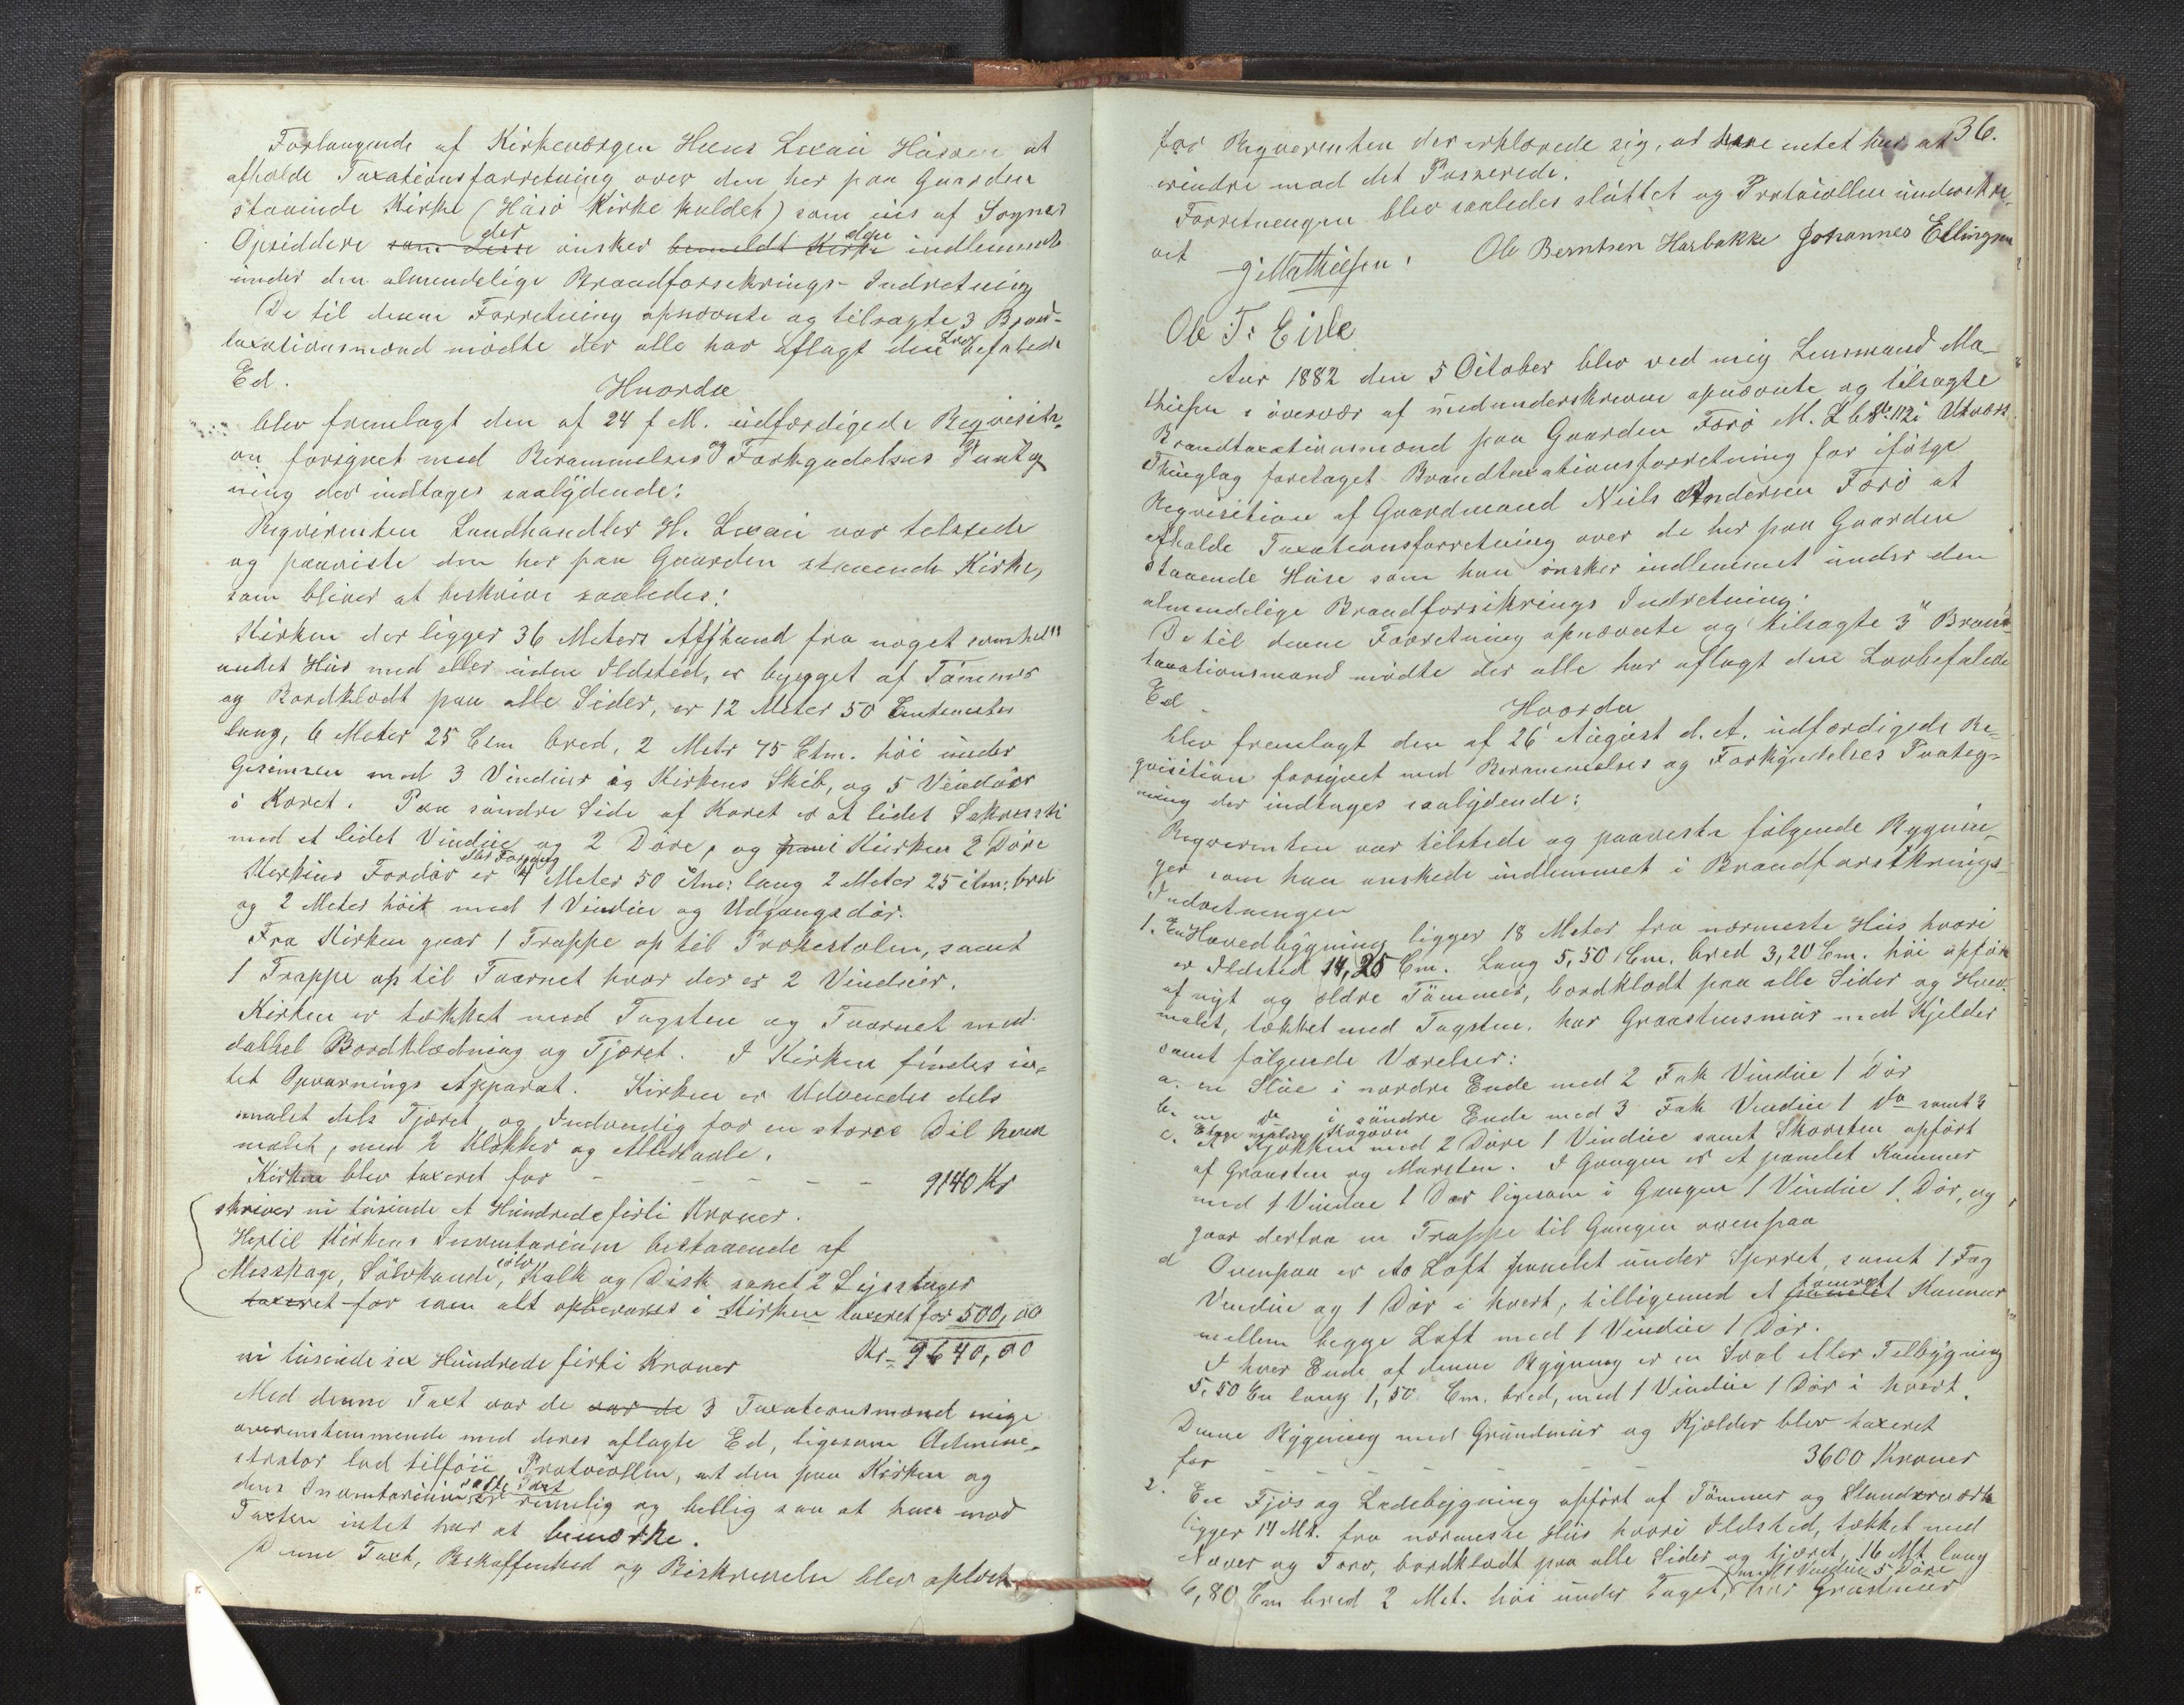 Forlangende af Kirkeværgen Hans Lexau Husøen at
afholde Taxationsforretning over den her paa Gaarden
staaende Kirke (Husø Kirke kaldet) som eies af Sognes
Opsiddere som disse der ønsker bemeldt Kirke den indlemmet
under den almendelige Brandforsikrings-Indretning
De til denne Forretning opnævnte og tilsagte 3 Brand-
taxationsmænd mødte der alle har aflagt den Lovbefalede
Ed.
Hvorda
blev fremlagt den af 24 f M. udfærdigede Reqvisiti-
on forsynet med Berammelses og Forkyndelses Paateg
ning der indtages saalydende:
Reqvirenten Landhandler H. Lexau var tilstede
og paaviste den her paa Gaarden staaende Kirke,
som bliver at beskrive saaledes:
Kirken der ligger 36 Meters Afstand fra noget somhelst
andet Hus med eller uden Ildsted, er bygget af Tømmer
og Bordklædt paa alle Sider, er 12 Meter 50 Centmeter
lang, 6 Meter 25 Ctm bred, 2 Metr 75 Ctm. høi under
Gesimsen med 3 Vinduer i Kirkens Skib, og 5 Vinduer
i Koret. Paa søndre Side af Koret er et lidet Sakresti
med et lidet Vindue og 2 Døre, og i Kirken 2 Døre
Kirkens Fordør eller Forgang er 4 Meter 50 ctm: lang 2 Meter 25 ctm: bred
og 2 Meter høit med 1 Vindue og Udgangsdør.
Fra Kirken gaar 1 Trappe op til Prækestolen, samt
1 Trappe op til Taarnet hvor der er 2 Vinduer.
Kirken er tækket med Tagsten og Taarnet med
dobbel Bordklædning og Tjæret. I Kirken findes in-
tet Opvarmings Apparat. Kirken er Udvendig dels
malet dels Tjæret og Indvendig for en større Del hvid
malet, med 2 Klokker og Altertavle.
Kirken blev taxeret for - - - - - 9140 Kr
skriver ni tusinde et Hundrede firti Kroner.
Hertil Kirkens Inventarium bestaaende af
Messhage, Sølvkande, sølv Kalk og Disk samt 2 Lysestager
taxeret for som alt opbevares i Kirken taxeret for 500,00
ni tusinde sex Hundrede firti Kroner Kr - 9640,00
Med denne Taxt var de var de 3 Taxationsmænd enige
overenstemmende med deres aflagte Ed, ligesom Admine-
strator lod tilføie Protocollen, at den paa Kirken og
dens Inventarium satte Taxt er rimelig og billig saa at han mod
Taxten intet har at bemærke.
Denne Taxt, Beskaffenhed og Beskrivelse blev oplæst
36.
for Reqvirenten der erklærede sig, at have intet her at
erindre mod det Passerede.
Forretningen blev saaledes sluttet og Protocollen underskre-
vet
J Mathiesen. Ole Berntsen Harbakke Johannes Ellingsen
Ole T: Eide
Aar 1882 den 5 October blev ved mig Lensmand Ma-
thiesen i overvær af medunderskrevne opnævnte og tilsagte
Brandtaxationsmænd paa Gaarden Færø M. L. No. 112 i Utvær
Thinglag foretaget Brandtaxationsforretning for ifølge
Reqvisition af Gaardmand Niels Andersen Færø at
afholde Taxationsforretning over de her paa Gaarden
staaende Huse som han ønsker indlemmet under den
almendelige Brandforsikrings Indretning.
De til denne Forretning opnævnte og tilsagte 3 Brand-
taxationsmænd mødte der alle har aflagt den Lovbefalede
Ed.
Hvorda
blev fremlagt den af 26 August d. A. udfærdigede Re-
qvisition forsynet med Berammelses og Forkyndelses Paateg-
ning der indtages saalydende:
Reqvirenten var tilstede og paaviste følgende Bygnin-
ger som han ønskede indlemmet i Brandforsikrings-
Indretningen
1. En Hovedbygning ligger 18 Meter fra nærmeste Hus hvori
er Ildsted 14,25 Cm. Lang 5,50 Cm. bred 3,20 Cm. høi opført
af nyt og ældre Tømmer, bordklædt paa alle Sider og Hvid-
malet, tækket med Tagsten. har Graastensmur med Kjelder
samt følgende Værelser:
a. en Stue i nordre Ende med 2 Fak Vindue 1 Dør
b. en do i søndre Ende med 3 Fak Vindue 1 do samt 2
Etage Kogovn
c. et Kjøkken med 2 Døre 1 Vindue samt Skorsten opført
af Graasten og Mursten. I Gangen er et panelet Kammer
med 1 Vindue 1 Dør ligesom i Gangen 1 Vindue 1 Dør, og
gaar derfra en Trappe til Gangen ovenpaa
d Ovenpaa er to Loft panelet under Sperret, samt 1 Fag
Vindue og 1 Dør i hvert, tilligemed et panelet tømret Kammer
mellem begge Loft med 1 Vindue 1 Dør.
I hver Ende af denne Bygning er en Sval eller Tilbygning
5,50 Cm lang 1,50 Cm. bred, med 1 Vindue 1 Dør i hvert.
Denne Bygning med Grundmur og Kjælder blev taxeret
for - - - - - - 3600 Kroner
2. En Fjøs og Ladebygning opført af Tømmer og Standerværk
ligger 14 Mt. fra nærmeste Hus hvori Ildsted, tækket med
Næver og Torv, bordklædt paa alle Sider og tjæret, 16 Mt lang
6,80 Cm bred 2 Met. høi under Taget, med 1 Vindue 5 Døre har Graastensmur